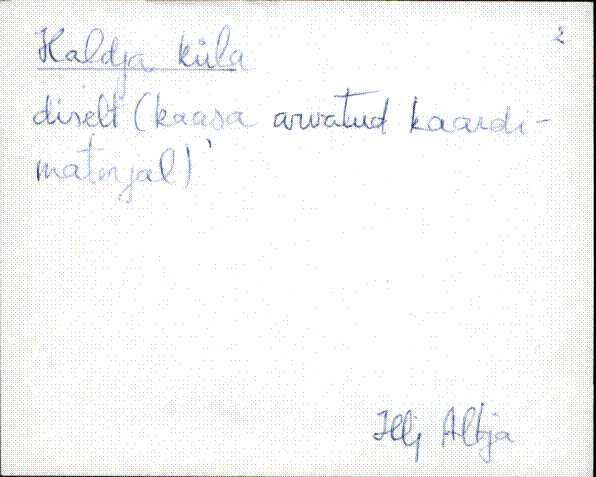 2
Haldja küla
diselt (kaasa arvatud kaardi-
materjal)'
Hlj Albja